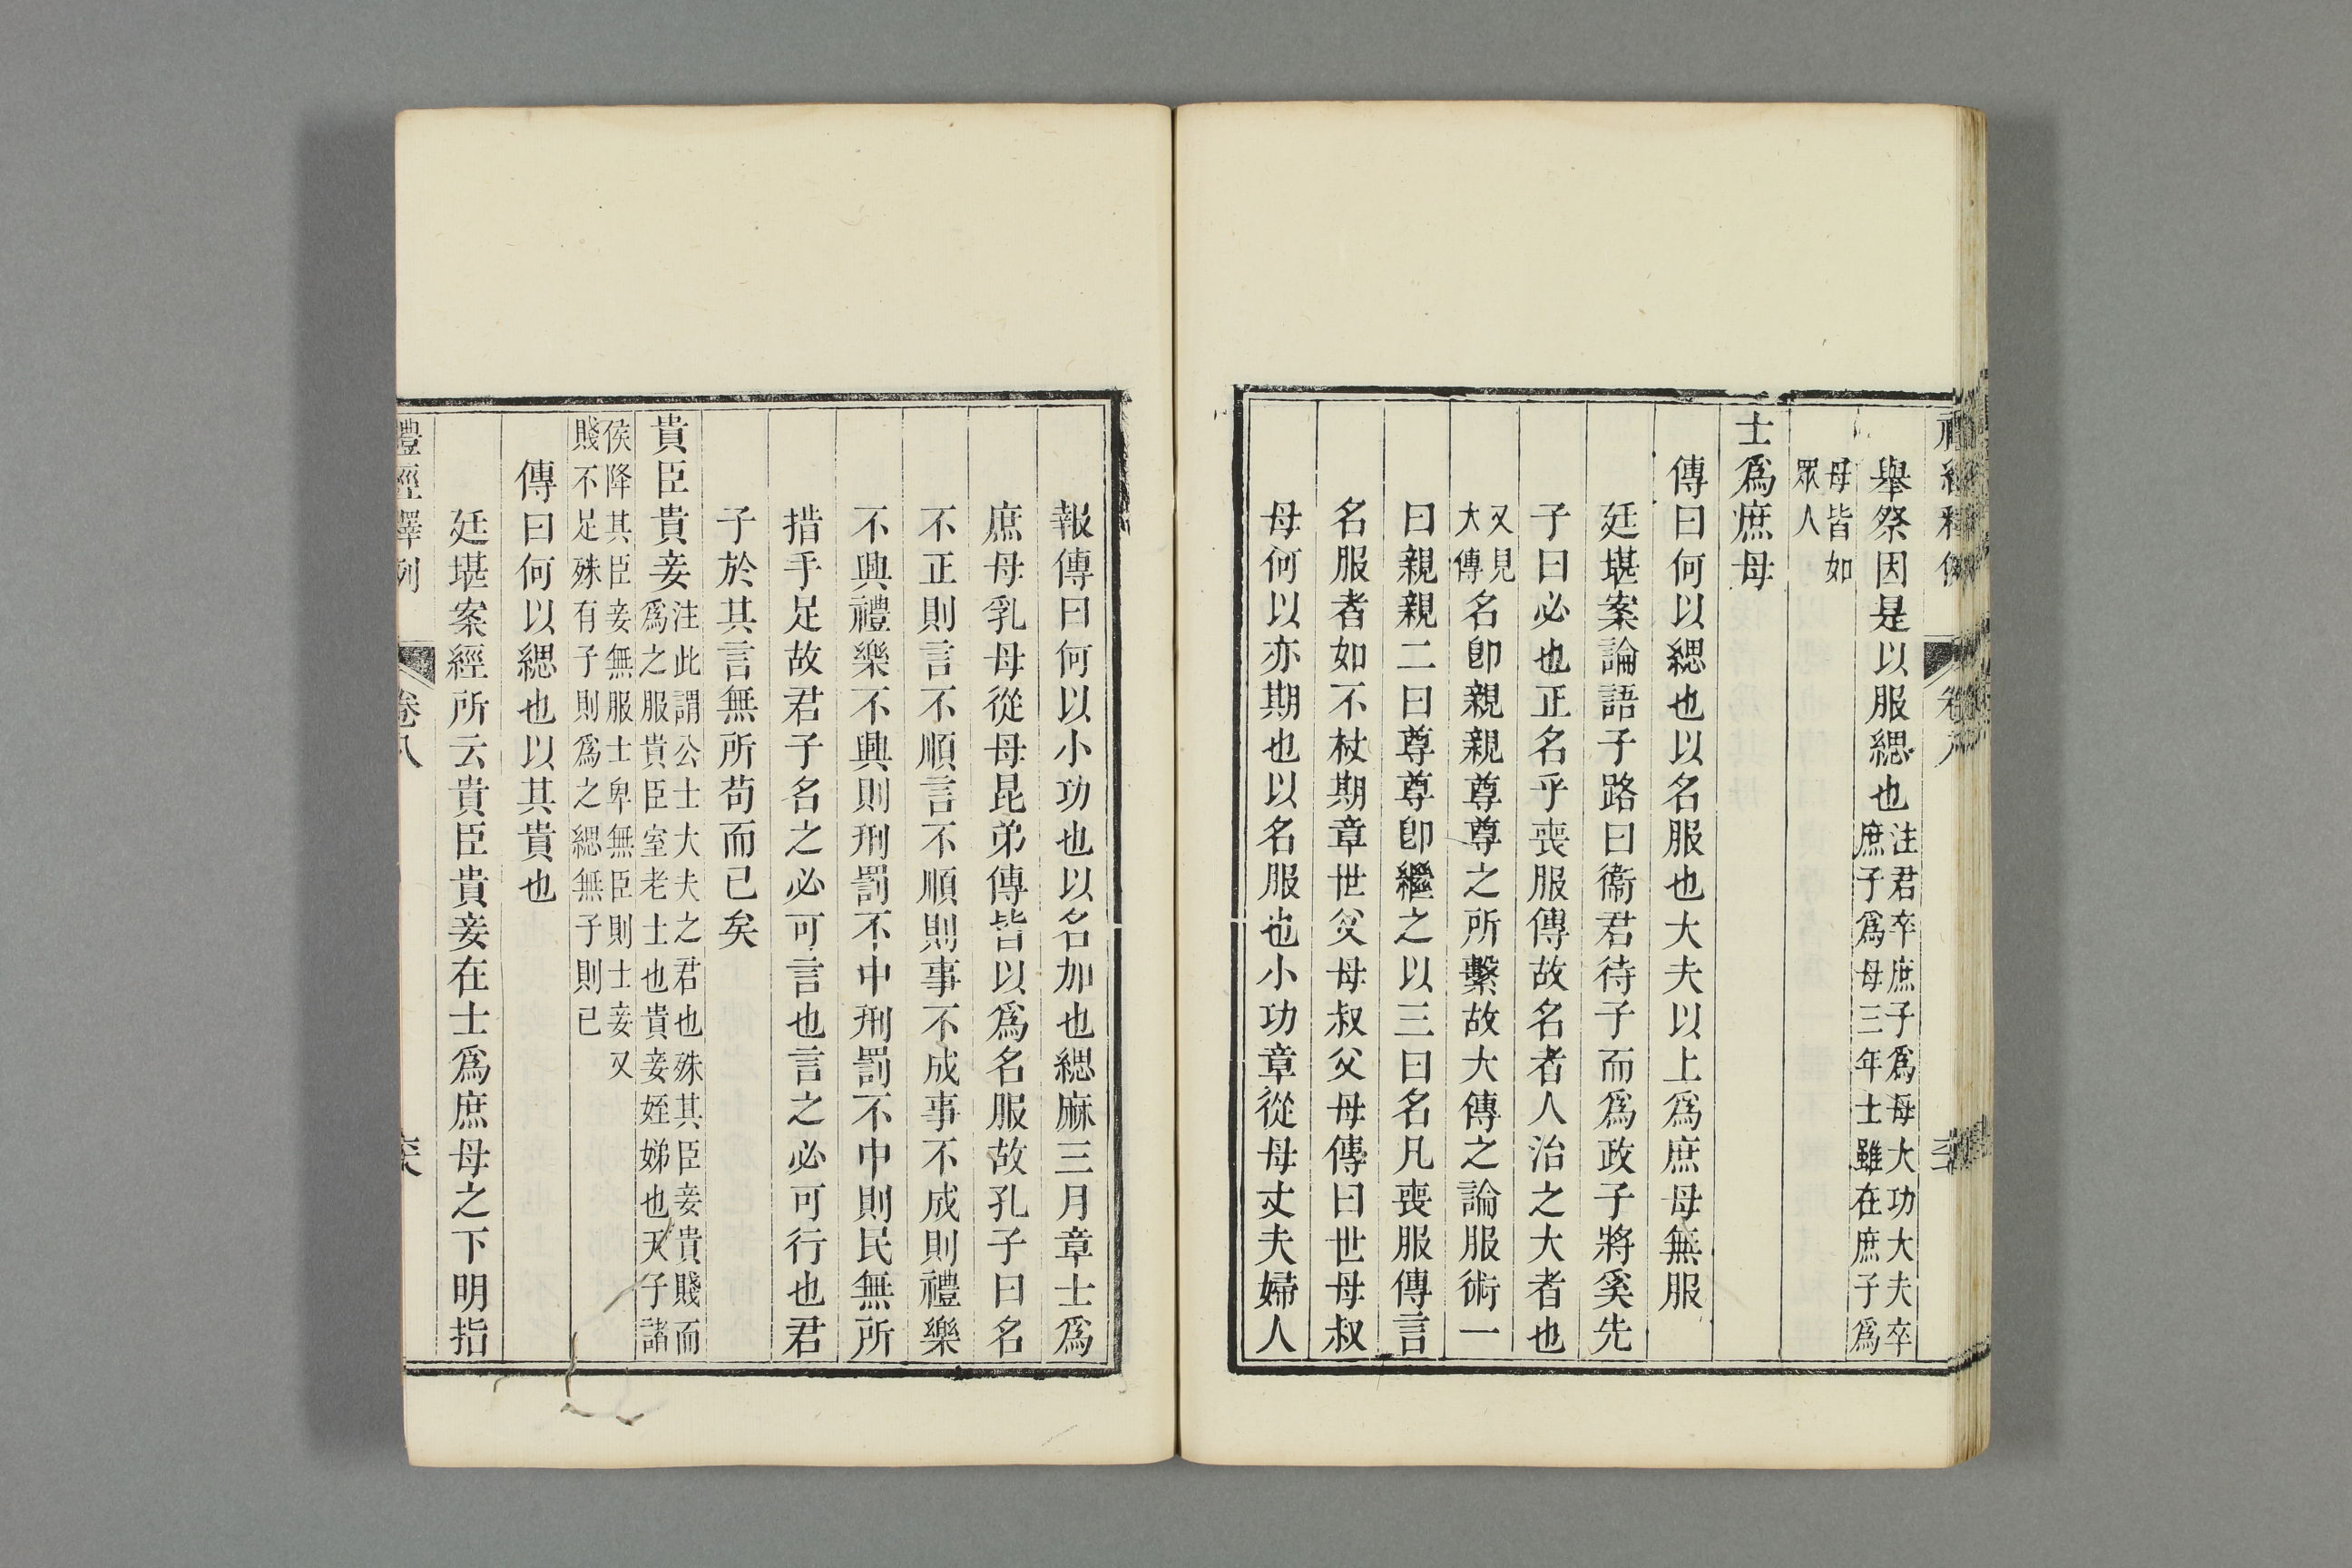 舉祭因是以服緦也注君卒庶子爲母大功大夫卒庶子爲母三年士雖在庶子爲
母皆如眾人
士爲庶母
傳曰何以緦也以名服也大夫以上爲庶母無服
廷堪案論語子路曰衞君待子而爲政子將奚先
子曰必也正名乎喪服傳故名者人治之大者也
又見大傳名卽親親尊尊之所繫故大傳之論服術一
曰親親二曰尊尊卽繼之以三曰名凡喪服傳言
名服者如不杖期章世父母叔父母傳曰世母叔
母何以亦期也以名服也小功章從母丈夫婦人
報傳曰何以小功也以名加也緦麻三月章士爲
庶母乳母從母昆弟傳皆以爲名服故孔子曰名
不正則言不順言不順則事不成事不成則禮樂
不興禮樂不興則刑罰不中刑罰不中則民無所
措手足故君子名之必可言也言之必可行也君
子於其言無所苟而已矣
貴臣貴妾注此謂公士大夫之君也殊其臣妾貴賤而爲之服貴臣室老士也貴妾姪娣也天子諸
侯降其臣妾無服士卑無臣則士妾又賤不足殊有子則爲之緦無子則已
傳曰何以緦也以其貴也
廷堪案經所云貴臣貴妾在士爲庶母之下明指
禮經釋例 卷八